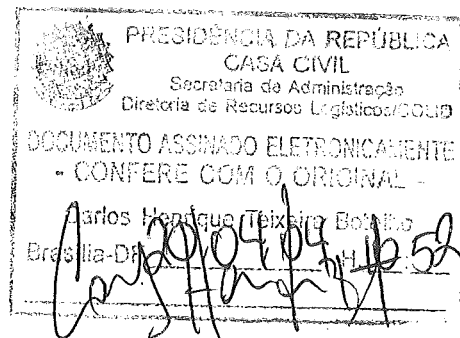 PRESIDÊNCIA DA REPÚBLICA
CASA CIVIL
Secretaria de Administração
Diretoria de Recursos Logísticos/COLID
DOCUMENTO ASSINADO ELETRONICAMENTE
- CONFERE COM O ORIGINAL -
Carlos Henrique Teixeira Botelho
Brasília-DF 20/04/04 H